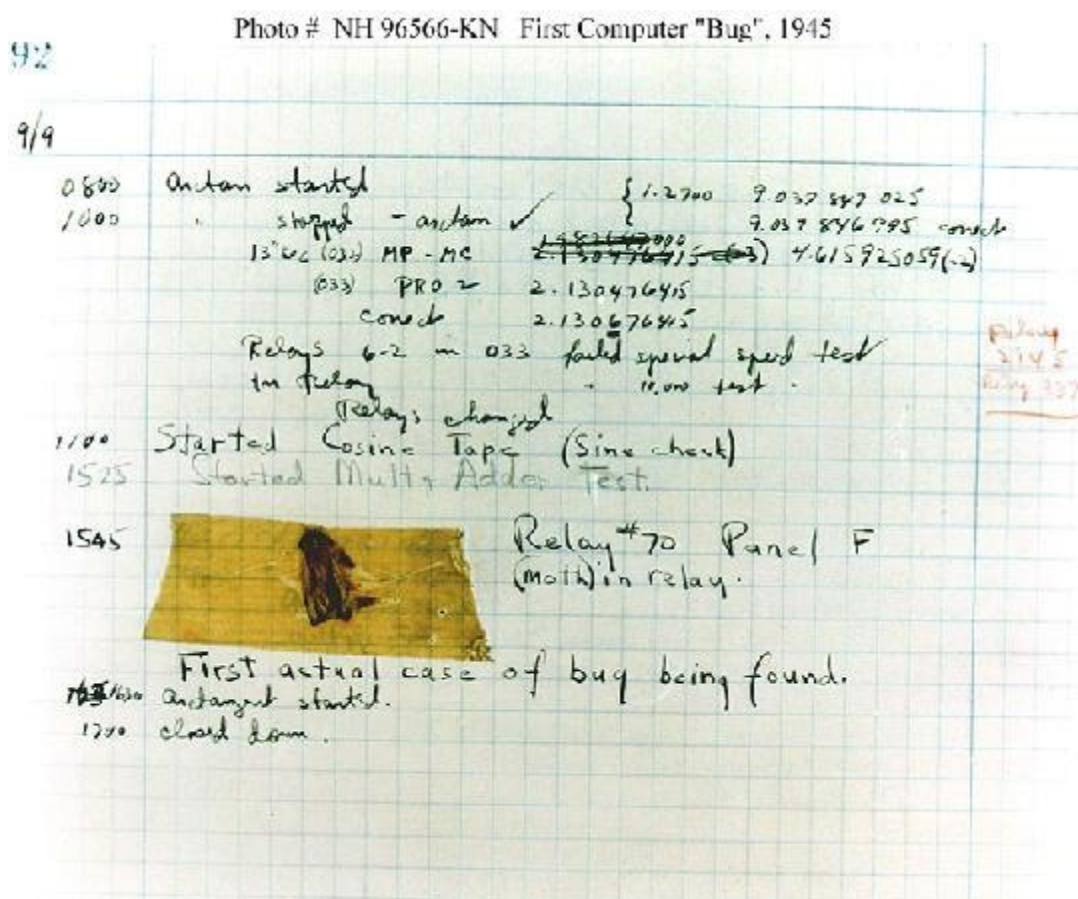 Photo # NH 96566-KN First Computer "Bug", 1945
92
9/9
0800 Antan started { 1.2700 9.037 847 025
1000 " stopped - antan ✓ 9.037 846 795 conect
13" (032) MP - MC 2.130476415 (-3) 4.615925059(-2)
(033) PRO 2 2.130476415
conect 2.130676415
Relays 6-2 in 033 failed special speed test
In Relay " 10,000 test .
Relay
2145
Relay 337
Relays changed
1100 Started Cosine Tape (Sine check)
1525 Started Mult + Adder Test.
1545 Relay #70 Panel F
(moth) in relay.
First actual case of bug being found.
1630 Antangent started.
1700 closed down.